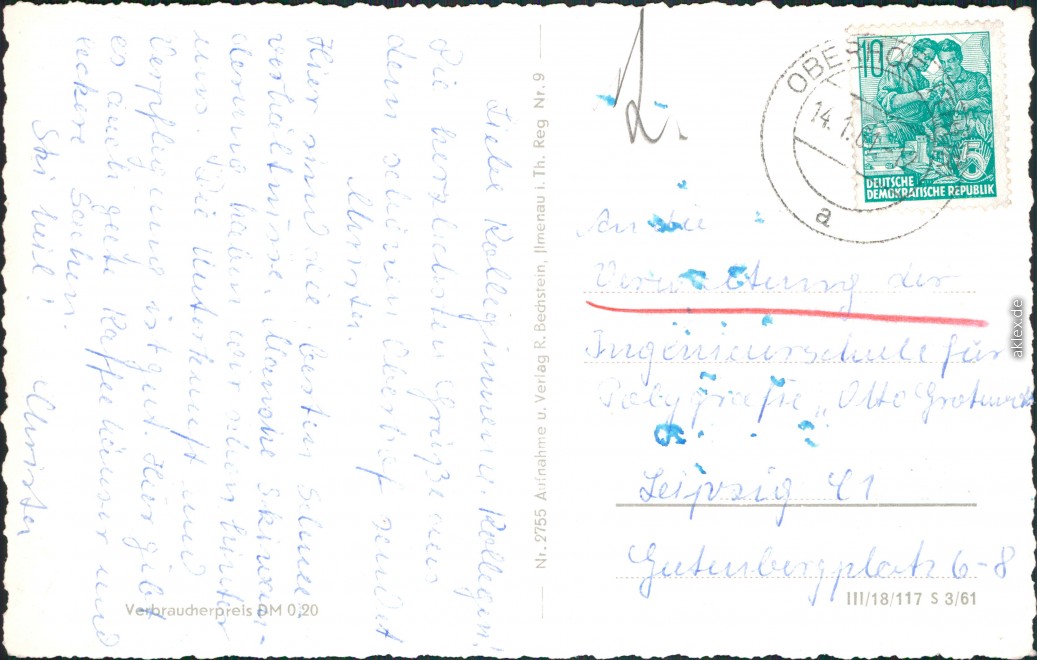 Liebe Kolleginnen u. Kollegen!
Die herzlichsten Grüße aus
dem schönen Oberhof sendet
Christa.
Hier sind die besten Schnee-
verhältnisse. Manche Skiwan-
derung haben wir schon hinter
uns. Die Unterkunft und
Verpflegung ist gut. Hier gibt
es auch gute Kaffeehäuser und
leckere Sachen.
Ski Heil!
Christa
Verbraucherpreis DM 0,20
Nr. 2755 Aufnahme u. Verlag R. Bechstein, Ilmenau i. Th. Reg Nr. 9
OBERHOF
14.1.6
a
10
5
DEUTSCHE
DEMOKRATISCHE REPUBLIK
An die
Verwaltung der
Ingenieurschule für
Polygrafie „Otto Grotewohl
Leipzig C1
Gutenbergplatz 6-8
III/18/117 S 3/61
aklex.de